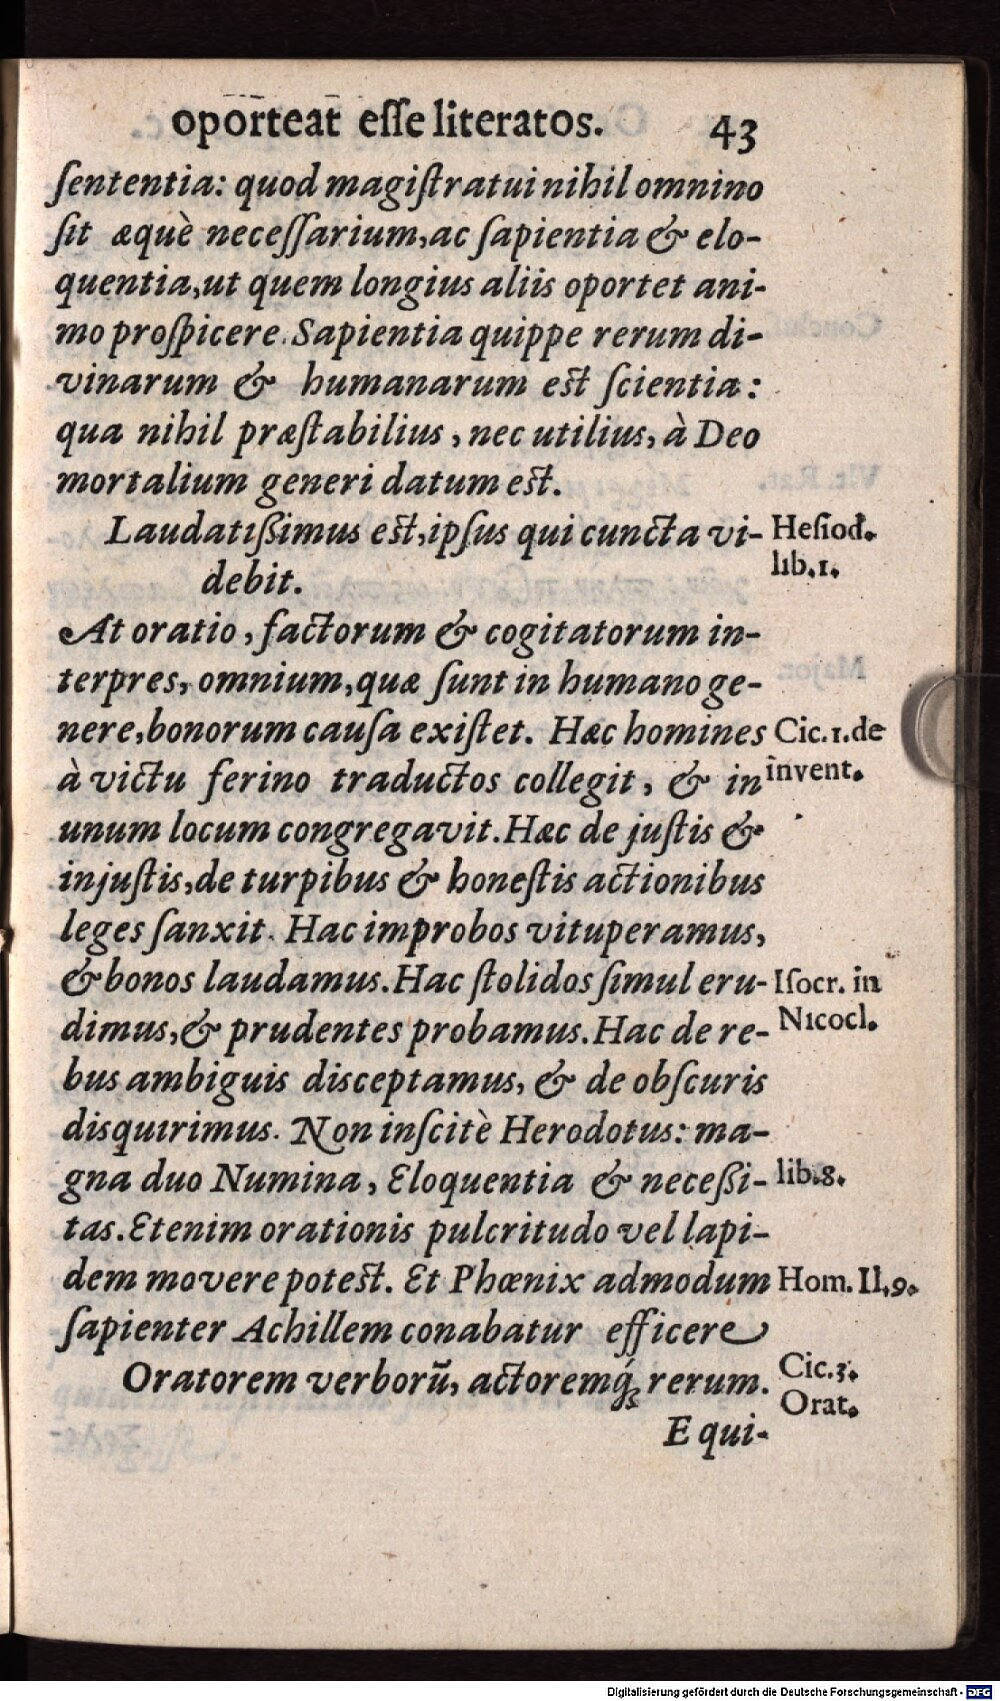 oporteat esse literatos. 43
sententia: quod magistratui nihil omnino
sit æquè necessarium, ac sapientia & elo-
quentia, ut quem longius aliis oportet ani-
mo prospicere. Sapientia quippe rerum di-
vinarum & humanarum est scientia:
qua nihil præstabilius, nec utilius, à Deo
mortalium generi datum est.
Laudatißimus est, ipsus qui cuncta vi-
debit.
Hesiod.
lib. 1.
At oratio, factorum & cogitatorum in-
terpres, omnium, quæ sunt in humano ge-
nere, bonorum causa existet. Hæc homines
à victu ferino traductos collegit, & in
Cic. 1. de
invent.
unum locum congregavit. Hæc de justis &
injustis, de turpibus & honestis actionibus
leges sanxit. Hac improbos vituperamus,
& bonos laudamus. Hac stolidos simul eru-
dimus, & prudentes probamus. Hac de re-
Isocr. in
Nicocl.
bus ambiguis disceptamus, & de obscuris
disquirimus. Non inscitè Herodotus: ma-
gna duo Numina, Eloquentia & neceßi-
lib. 8.
tas. Etenim orationis pulcritudo vel lapi-
dem movere potest. Et Phœnix admodum
Hom. Il. 9.
sapienter Achillem conabatur efficere
Oratorem verborũ, actoremq́; rerum.
Cic. 3.
Orat.
E qui-
Digitalisierung gefördert durch die Deutsche Forschungsgemeinschaft - DFG